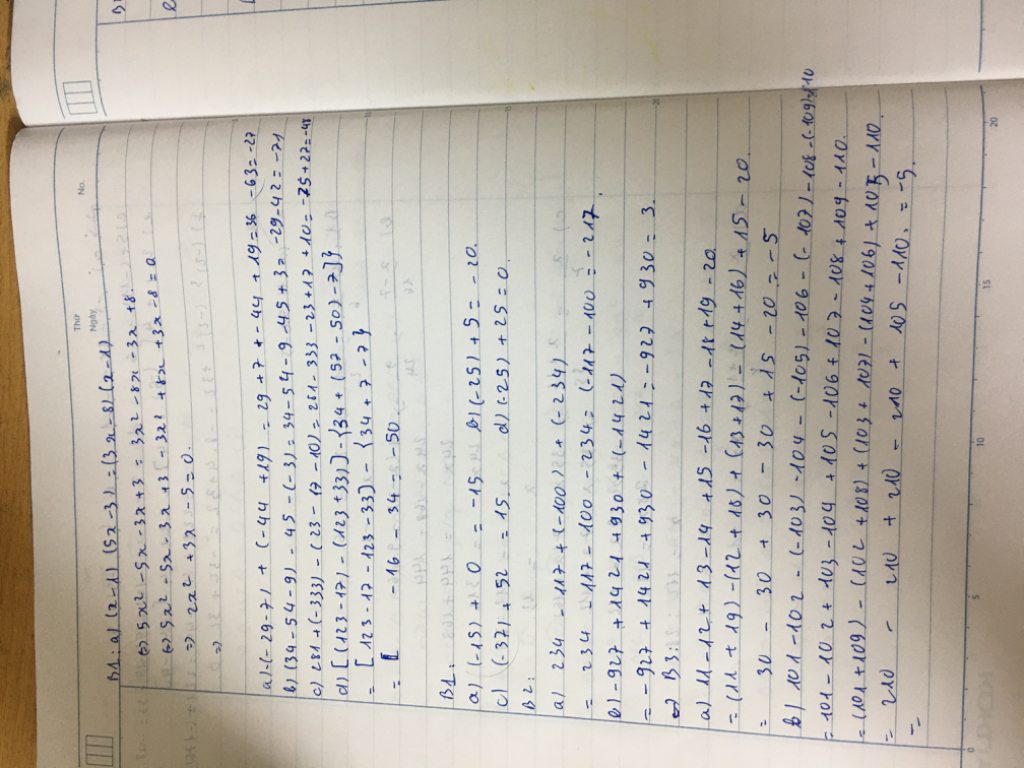 Thứ
Ngày
No.
B1: a) (x-1)(5x-3) = (3x-8)(x-1)
<=> 5x² - 5x - 3x + 3 = 3x² - 8x - 3x + 8.
<=> 5x² - 5x - 3x + 3 - 3x² + 8x + 3x - 8 = 0
=> 2x² + 3x - 5 = 0.
=>
a) -(-29-7) + (-44+19) = 29 + 7 + -44 + 19 = 36 - 63 = -27
b) (34-54-9) - 45 - (-3) = 34-54-9-45+3 = -29-42 = -71
c) 281 + (-333) - (23-17-10) = 281-333-23+17+10 = -75+22 = -48
d) [(123-17) - (123+33)] - {34 + (57-50) - 7]}
= [123-17-123-33] - {34+7-7}
= -16 - 34 = -50
B1:
a) (-15) + 0 = -15 b) (-25) + 5 = -20.
c) (-37) + 52 = 15 d) (-25) + 25 = 0.
B2:
a) 234 - 117 + (-100) + (-234)
= 234 - 117 - 100 - 234 = (-117-100 = -217.
b) -927 + 1421 + 930 + (-1421)
= -927 + 1421 + 930 - 1421 = -927 + 930 = 3.
B3:
a) 11-12+13-14+15-16+17-18+19-20.
= (11+19) - (12+18) + (13+17) - (14+16) + 15 - 20.
= 30 - 30 + 30 - 30 + 15 - 20 = -5
b) 101-102-(-103)-104-(-105)-106-(-107)-108-(-109)-110
= 101-102+103-104+105-106+107-108+109-110.
= (101+109) - (102+108) + (103+107) - (104+106) + 105 - 110
= 210 - 210 + 210 - 210 + 105 - 110. = -5.
=
0 5 10 15 20